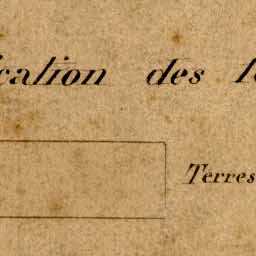 cation des
Terres